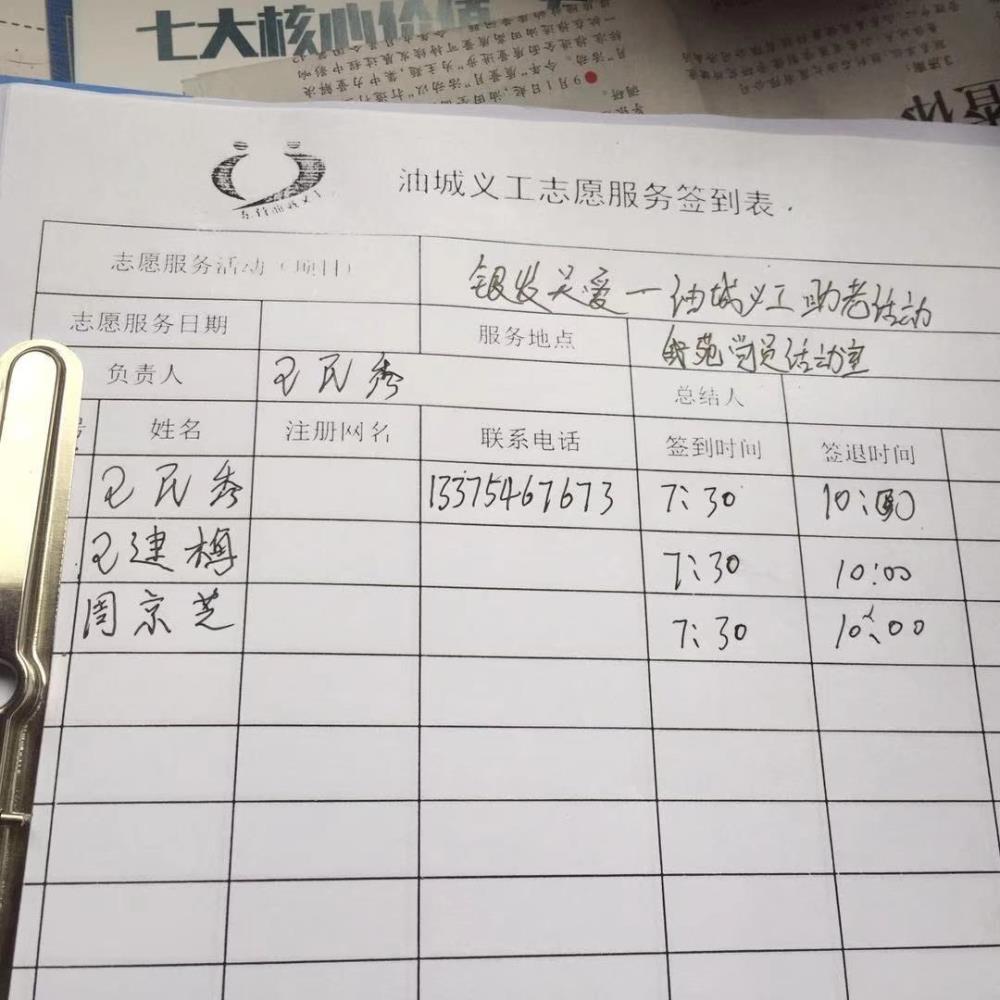 七大核心价值
油城义工志愿服务签到表.
志愿服务活动（项目） 银发关爱—油城义工助老活动
志愿服务日期 服务地点 苑党员活动室
负责人 王民秀 总结人
号 姓名 注册网名 联系电话 签到时间 签退时间
王民秀 13375467673 7:30 10:00
王建梅 7:30 10:00
周京芝 7:30 10:00